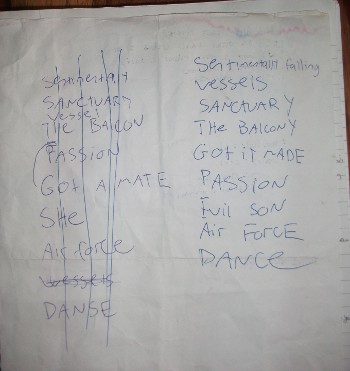 Sentimentalt
SANCTUARY
Vessel
THE BALCOU
PASSION
GOT A MATE
SHE
Air force
vessels
DANSE
Sentimentalt falling
vessels
SANCTUARY
THE BALCONY
GOT iT MADE
PASSION
Evil SON
Air FORCE
DANCE